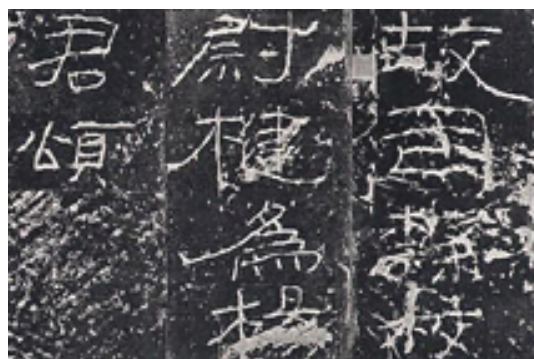 故司隸校
尉楗為楊
君頌